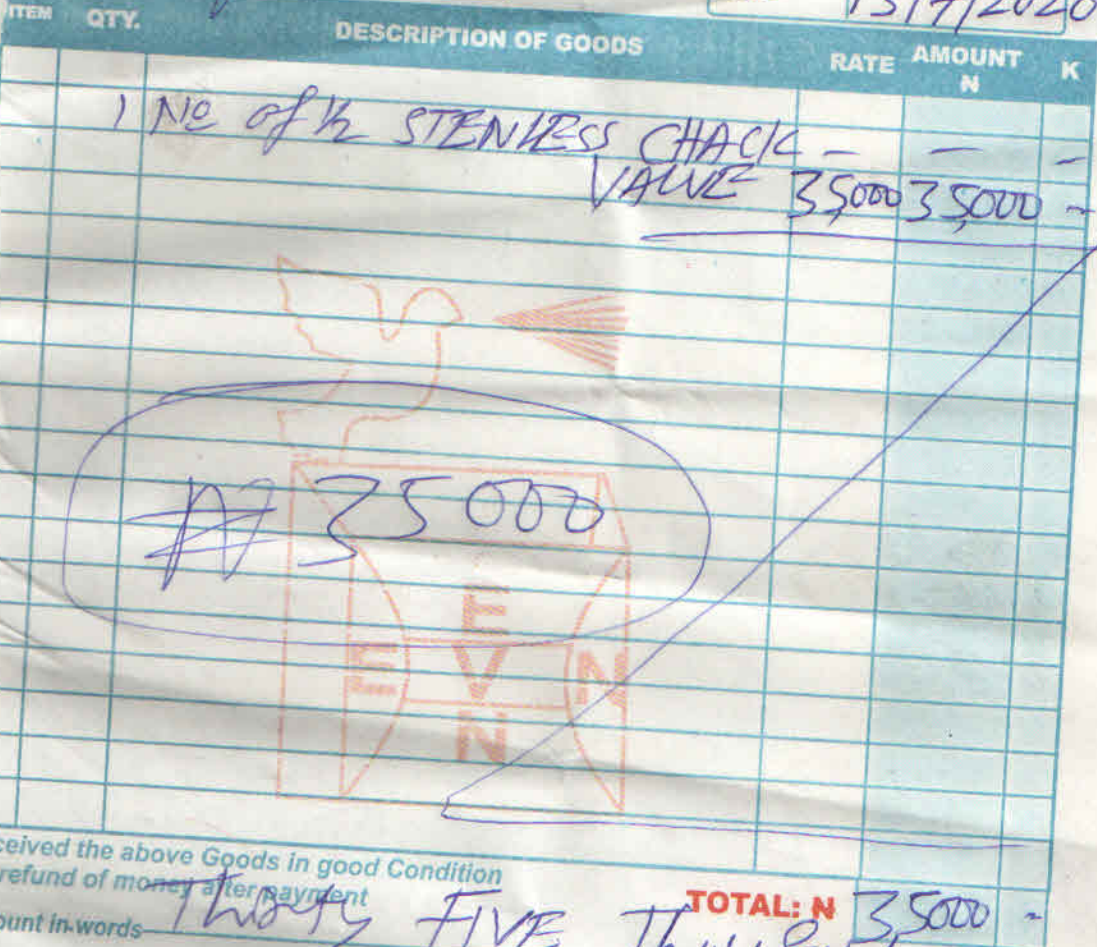 13/7/2020
ITEM QTY. DESCRIPTION OF GOODS RATE AMOUNT N K
1 No of ½ STENLESS CHACK - - -
VALVE 35,000 35,000 -
₦35000
E
E V N
N
ceived the above Goods in good Condition
refund of money after payment
TOTAL: N 35,000 -
ount in words Thirty FIVE